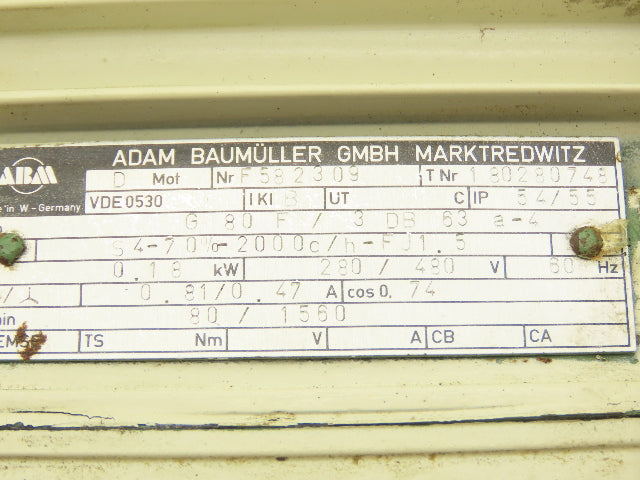 ADAM BAUMÜLLER GMBH MARKTREDWITZ
ABM
D Mot Nr F582309 T Nr 180280748
in W-Germany VDE 0530 I Kl B UT C IP 54/55
G 80 F / 3 DB 63 a-4
S4-70%-2000c/h-FJ1.5
0.18 kW 280 / 480 V 60 Hz
0.81/0.47 A cos 0. 74
min 80 / 1560
EMSE TS Nm V A CB CA